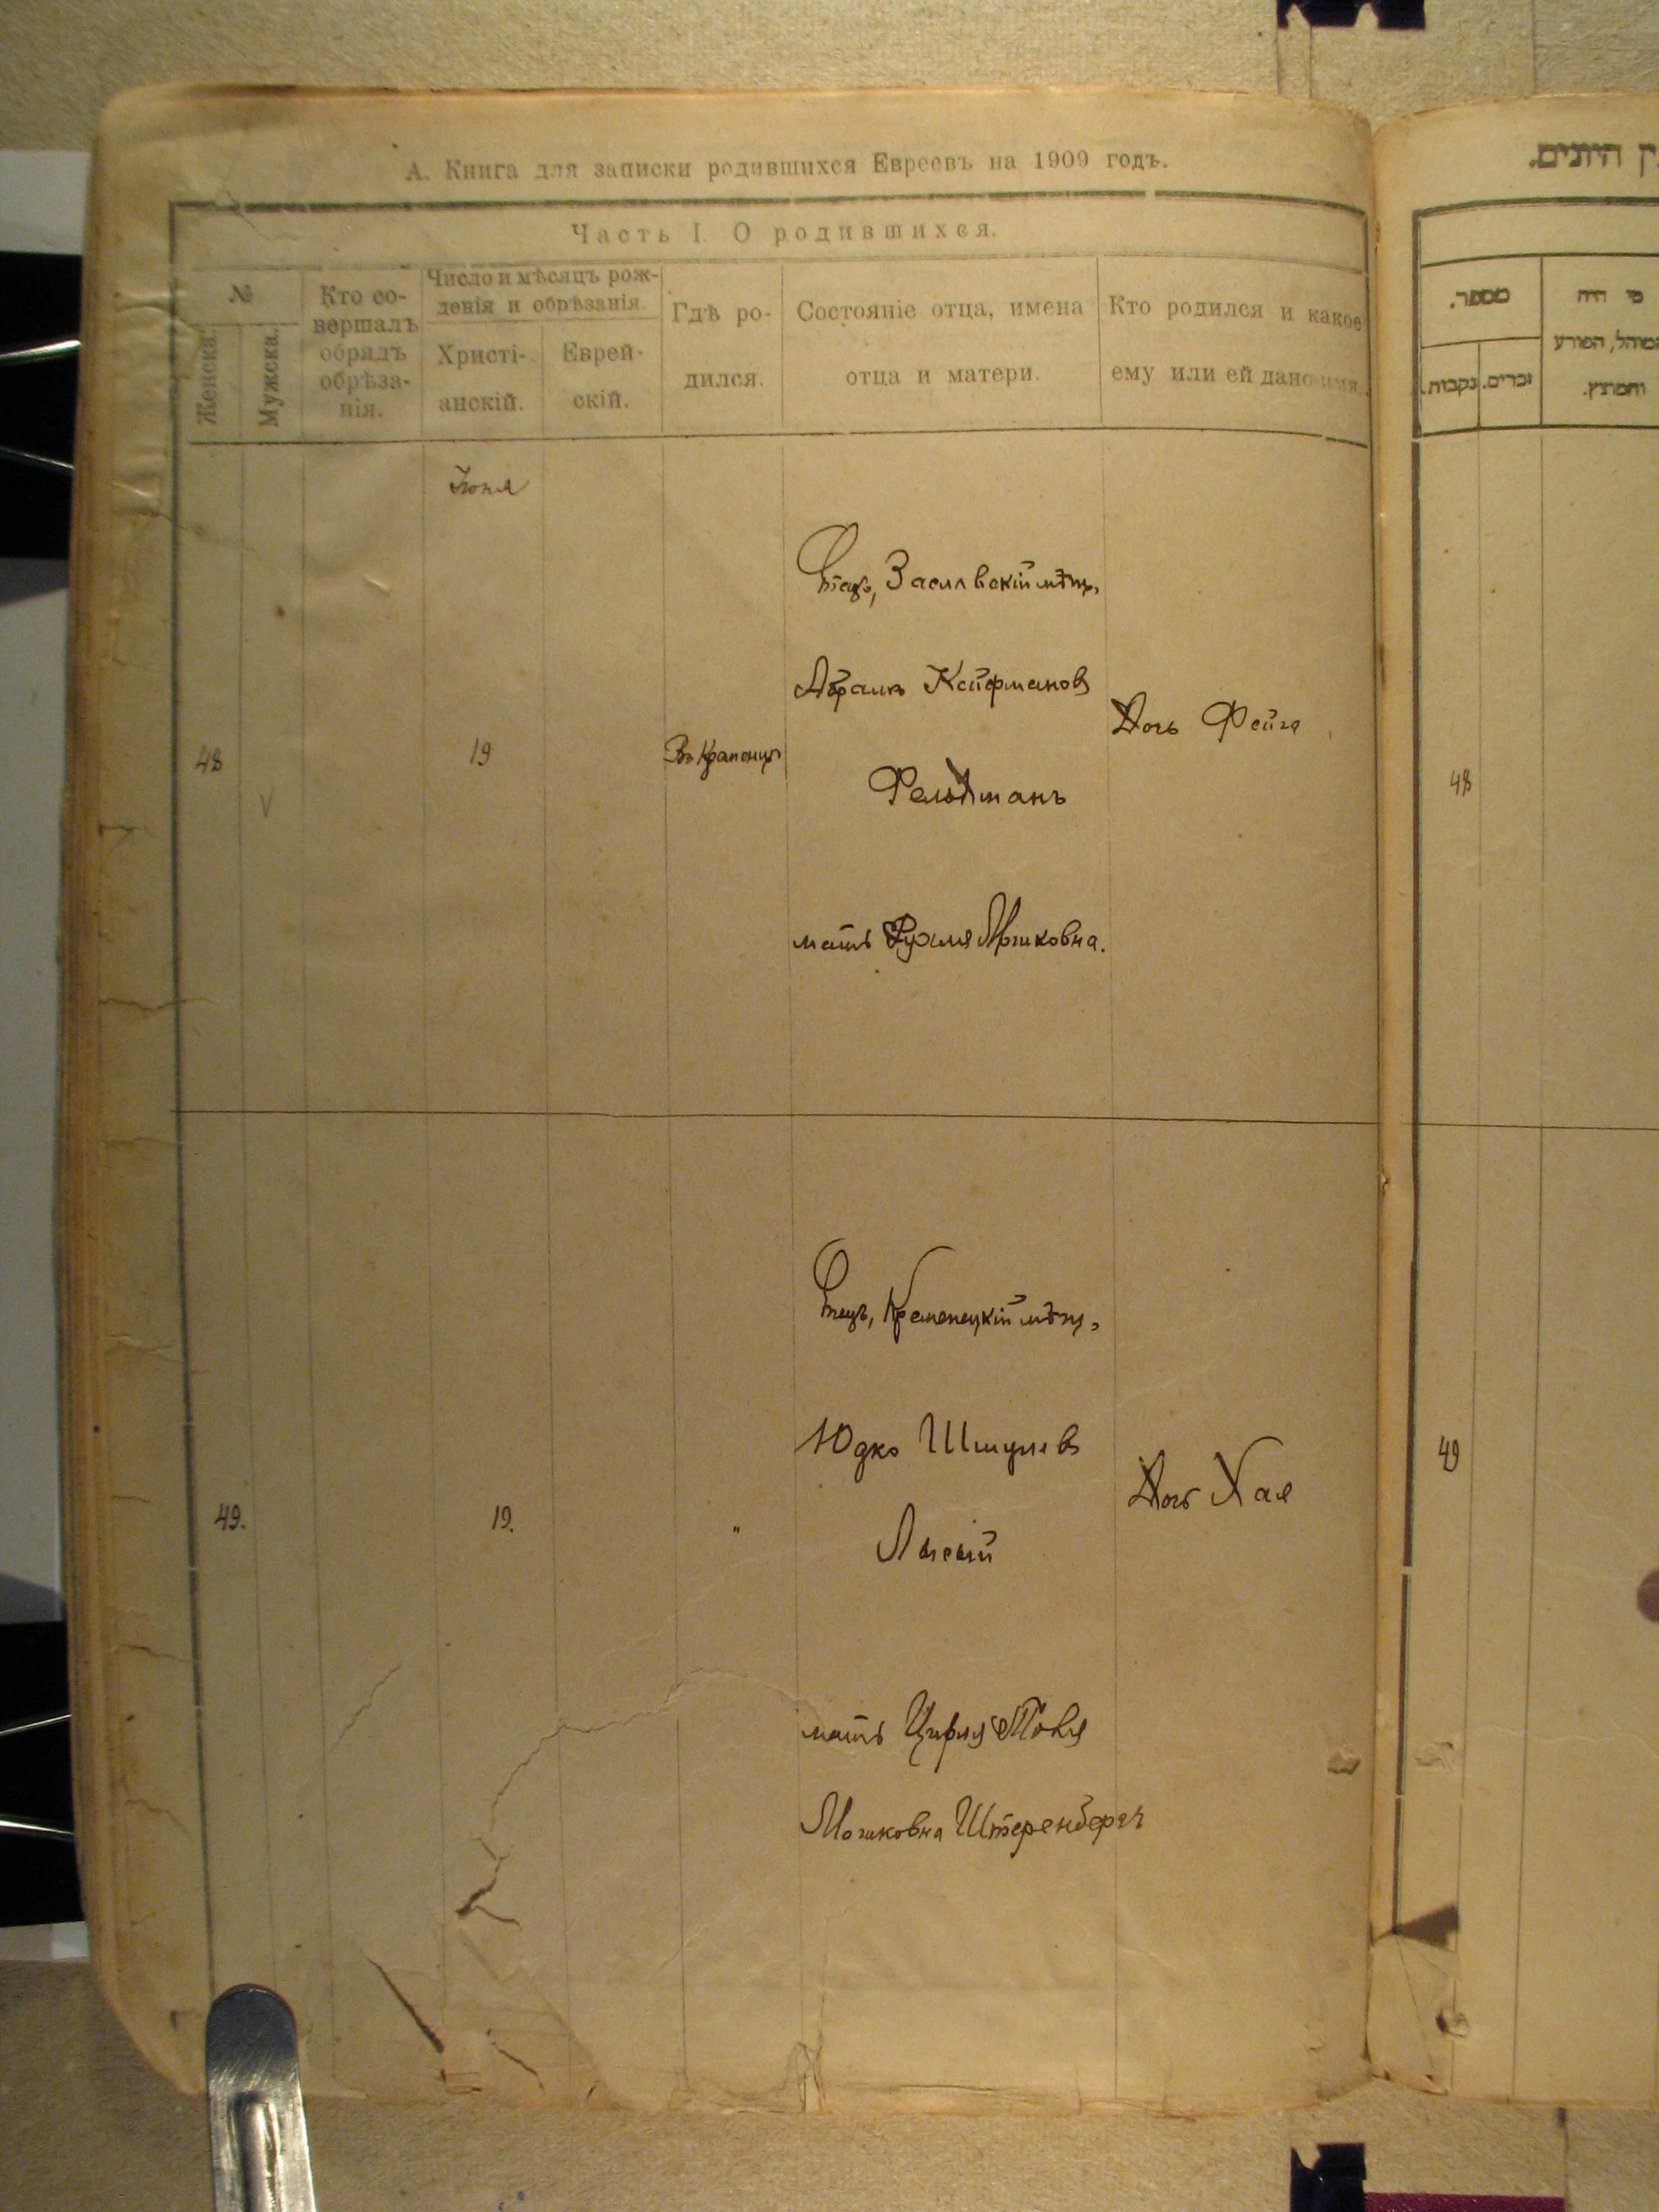 А. Книга для записки родившихся Евреевъ на 1909 годъ.
Часть I. О родившихся.
№
Женска.
Мужска.
Кто со-
вершалъ
обрядъ
обрѣза-
нія.
Число и мѣсяцъ рож-
денія и обрѣзанія.
Христі-
анскій.
Еврей-
скій.
Гдѣ ро-
дился.
Состояніе отца, имена
отца и матери.
Кто родился и какое
ему или ей дано имя.
Іюня
48
19
Отецъ, Заславскій мѣщ.
Абрамъ Кайфманов
Фельдманъ
мать Рухля Мошковна.
Дочь Фейга
49.
19.
"
Отецъ, Кременецкій мѣщ.
Юдко Шмулев
Лысый
мать Цирля Товя
Мошковна Штеренберг
Дочь Хая
ן היונים.
מספר.
נקבות.
זכרים.
מי היה
המוהל, הפורע
והמוצץ.
48
49